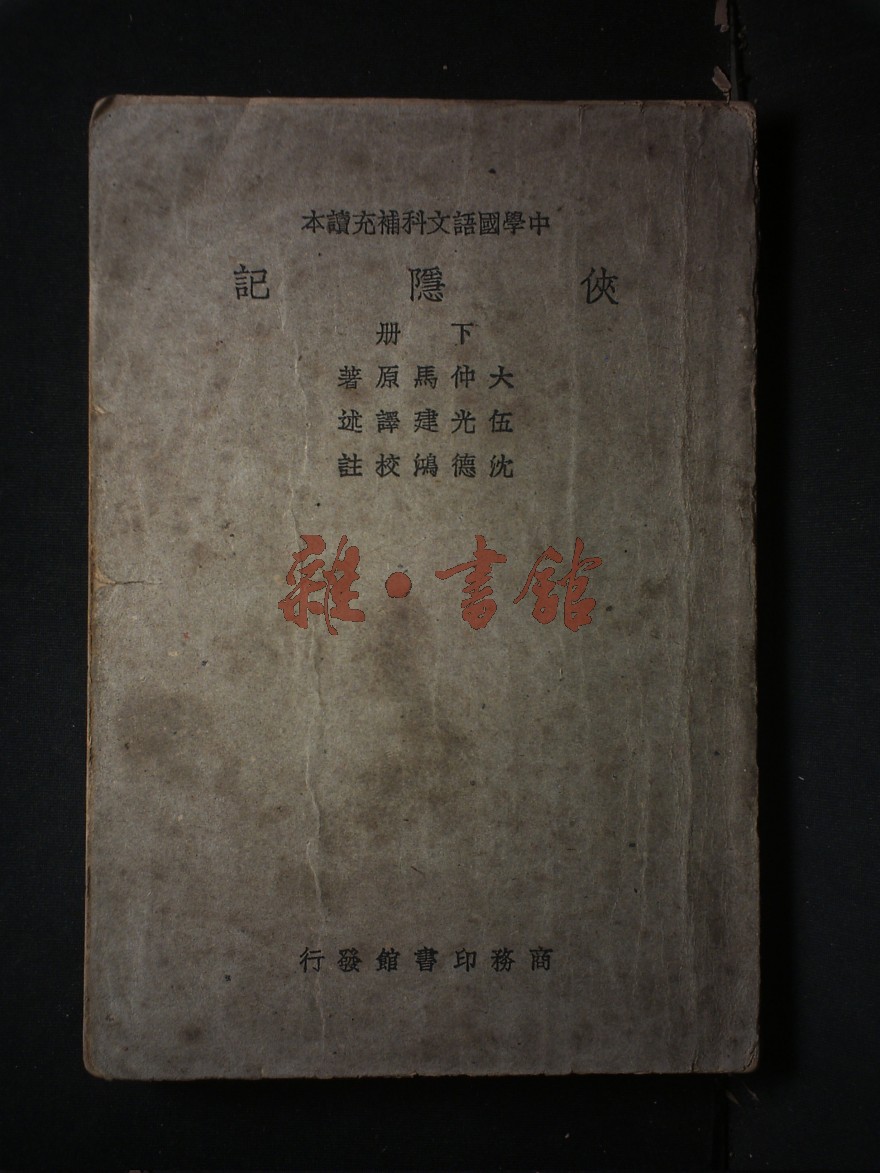 中學國語文科補充讀本
俠隱記
下册
大仲馬原著
伍光建譯述
沈德鴻校註
雜·書館
商務印書館發行